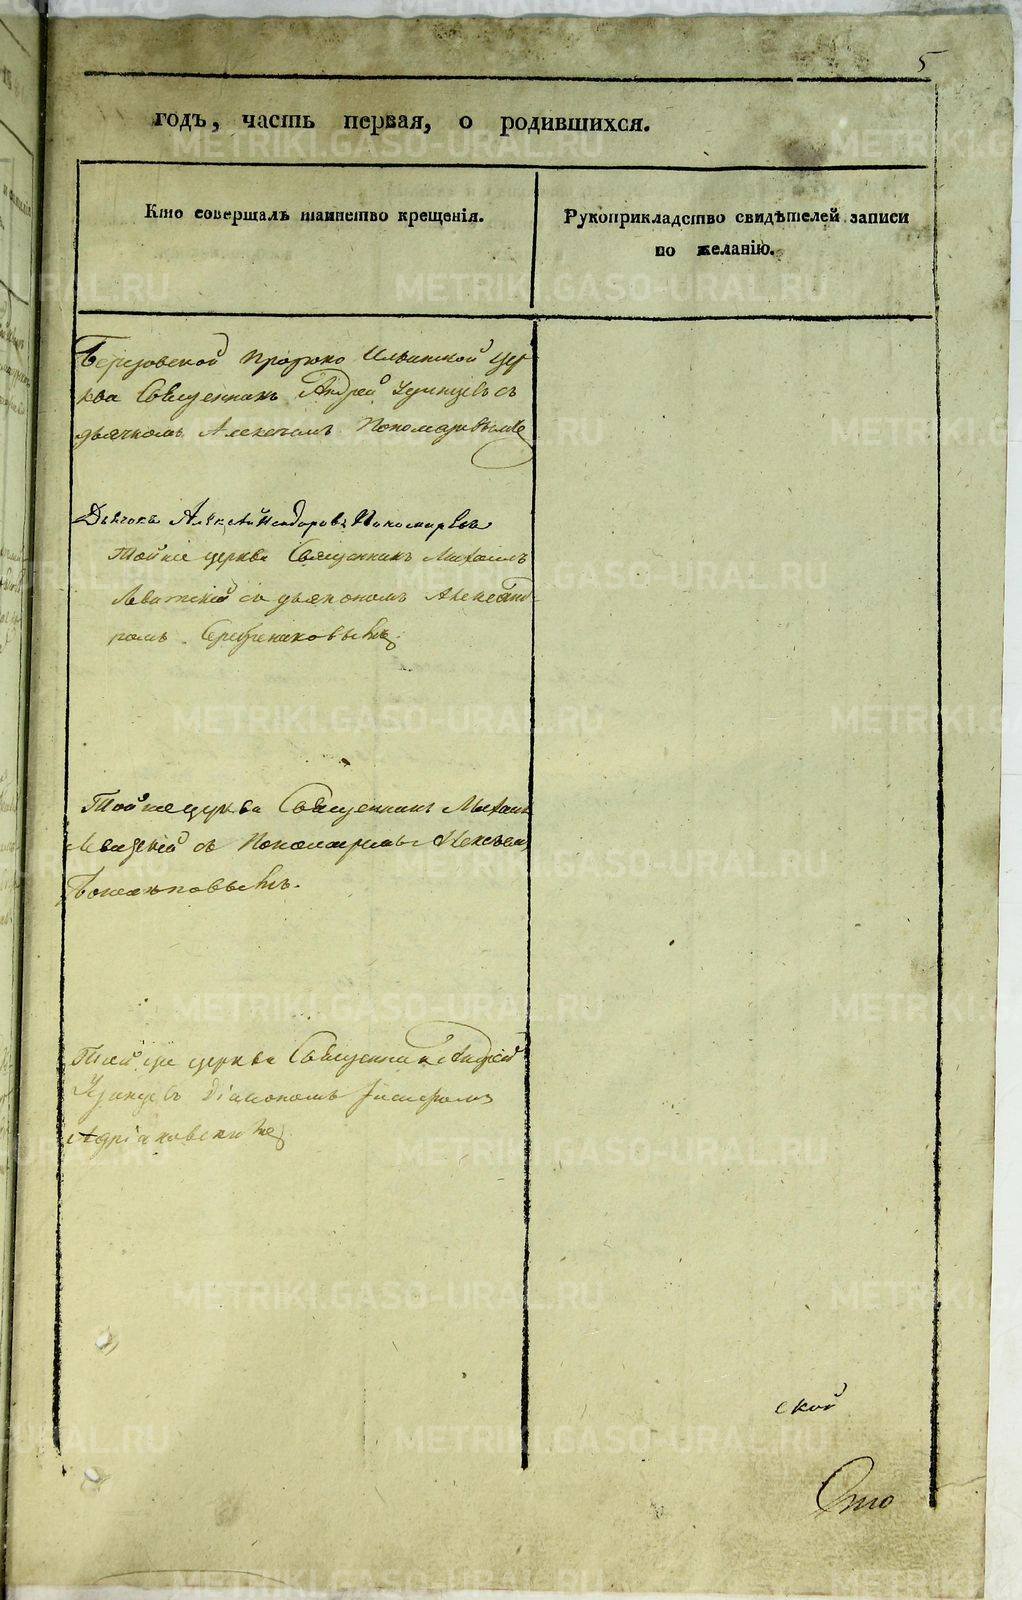 5
годъ, часть первая, о родившихся.
Кто совершалъ таинство крещенія.
Рукоприкладство свидѣтелей записи
по желанію.
Березовской Пророко Ильинской Цер
кви Священникъ Андрей Удинцевъ съ
дьячкомъ Алексѣемъ Пономаревымъ
Дьячокъ Алексѣй Пономаревъ
Той же церкви Священникъ Михаилъ
Левитскій съ дьякономъ Александ
ромъ Серебрениковымъ
Той же церкви Священникъ Михаилъ
Левицкій съ Пономаремъ
Той же церкви Священникъ Андрей
Удинцевъ Діакономъ
Адріановскимъ
ской
Сто
METRIKI.GASO-URAL.RU